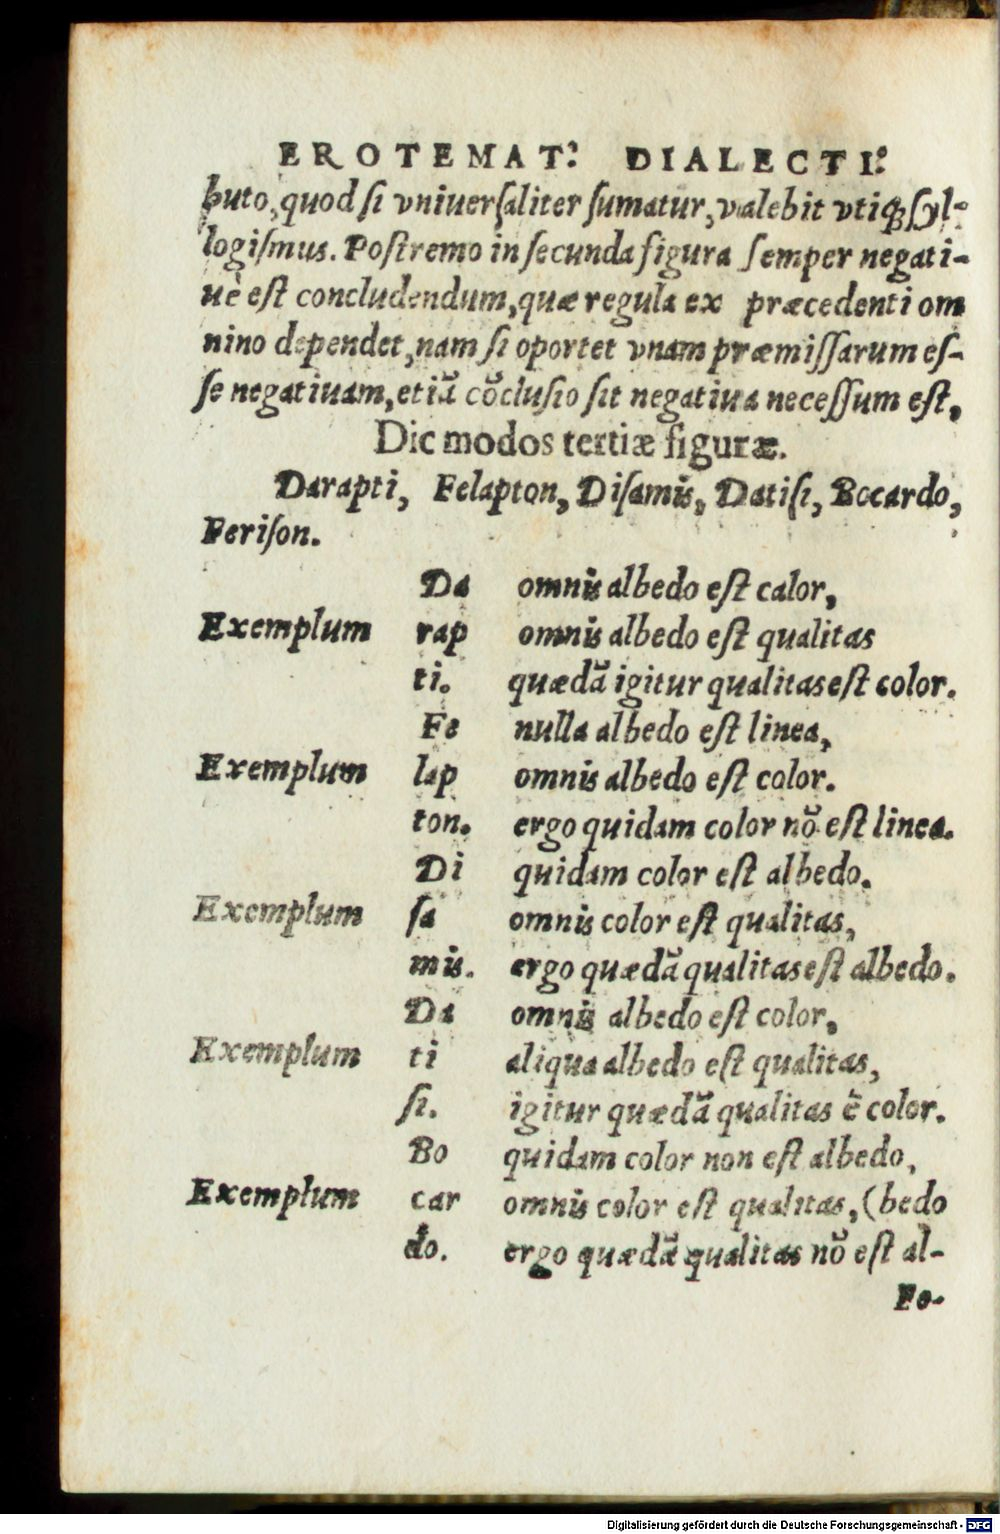 EROTEMAT: DIALECTI:
buto, quod si vniuersaliter sumatur, valebit vtiqꝫ syl-
logismus. Postremo in secunda figura semper negati-
uè est concludendum, quæ regula ex præcedenti om
nino dependet, nam si oportet vnam præmissarum es-
se negatiuam, etiā cōclusio sit negatiua necessum est,
Dic modos tertiæ figuræ.
Darapti, Felapton, Disamis, Datisi, Bocardo,
Ferison.
Da omnis albedo est calor,
Exemplum rap omnis albedo est qualitas
ti. quædā igitur qualitas est color.
Fe nulla albedo est linea,
Exemplum lap omnis albedo est color.
ton. ergo quidam color nō est linea.
Di quidam color est albedo.
Exemplum sa omnis color est qualitas,
mis. ergo quædā qualitas est albedo.
Da omnis albedo est color,
Exemplum ti aliqua albedo est qualitas,
si. igitur quædā qualitas ē color.
Bo quidam color non est albedo,
Exemplum car omnis color est qualitas, (bedo
do. ergo quædā qualitas nō est al-
Fe-
Digitalisierung gefördert durch die Deutsche Forschungsgemeinschaft - DFG